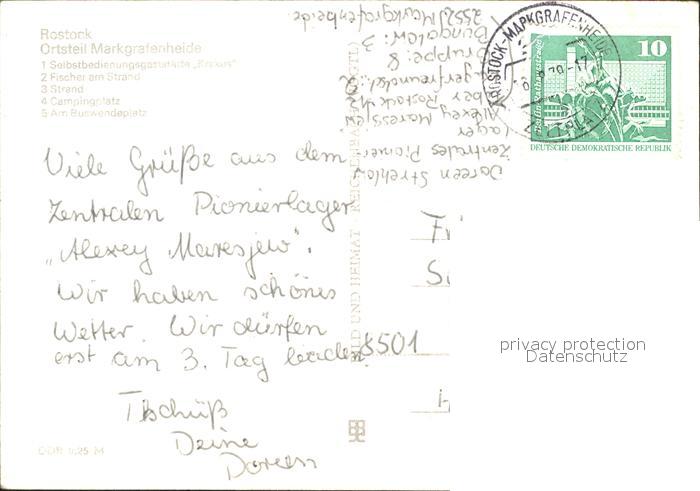 Rostock
Ortsteil Markgrafenheide
1 Selbstbedienungsgaststätte
2 Fischer am Strand
3 Strand
4 Campingplatz
5 Am Buswendeplatz
Viele Grüße aus dem
Zentralen Pionierlager
„Alexey Maresjew".
Wir haben schönes
Wetter. Wir dürfen
erst am 3. Tag baden.
Tschüß
Deine
Doreen
Doreen Strehlow
Zentrales Pionier-
lager
Alexey Maresjew
über Rostock
Lagerfreundsch.
Gruppe: 8
Bungalow: 3
2552 Markgrafenheide
BILD UND HEIMAT · REICHENBACH
8501
ROSTOCK-MARKGRAFENHEIDE
10
Berlin, Rathausstraße
DEUTSCHE DEMOKRATISCHE REPUBLIK
privacy protection
Datenschutz